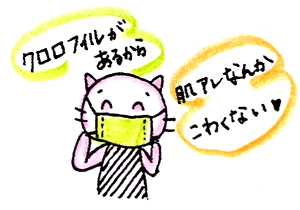 クロロフィルが
あるから
肌アレなんか
こわくない♥